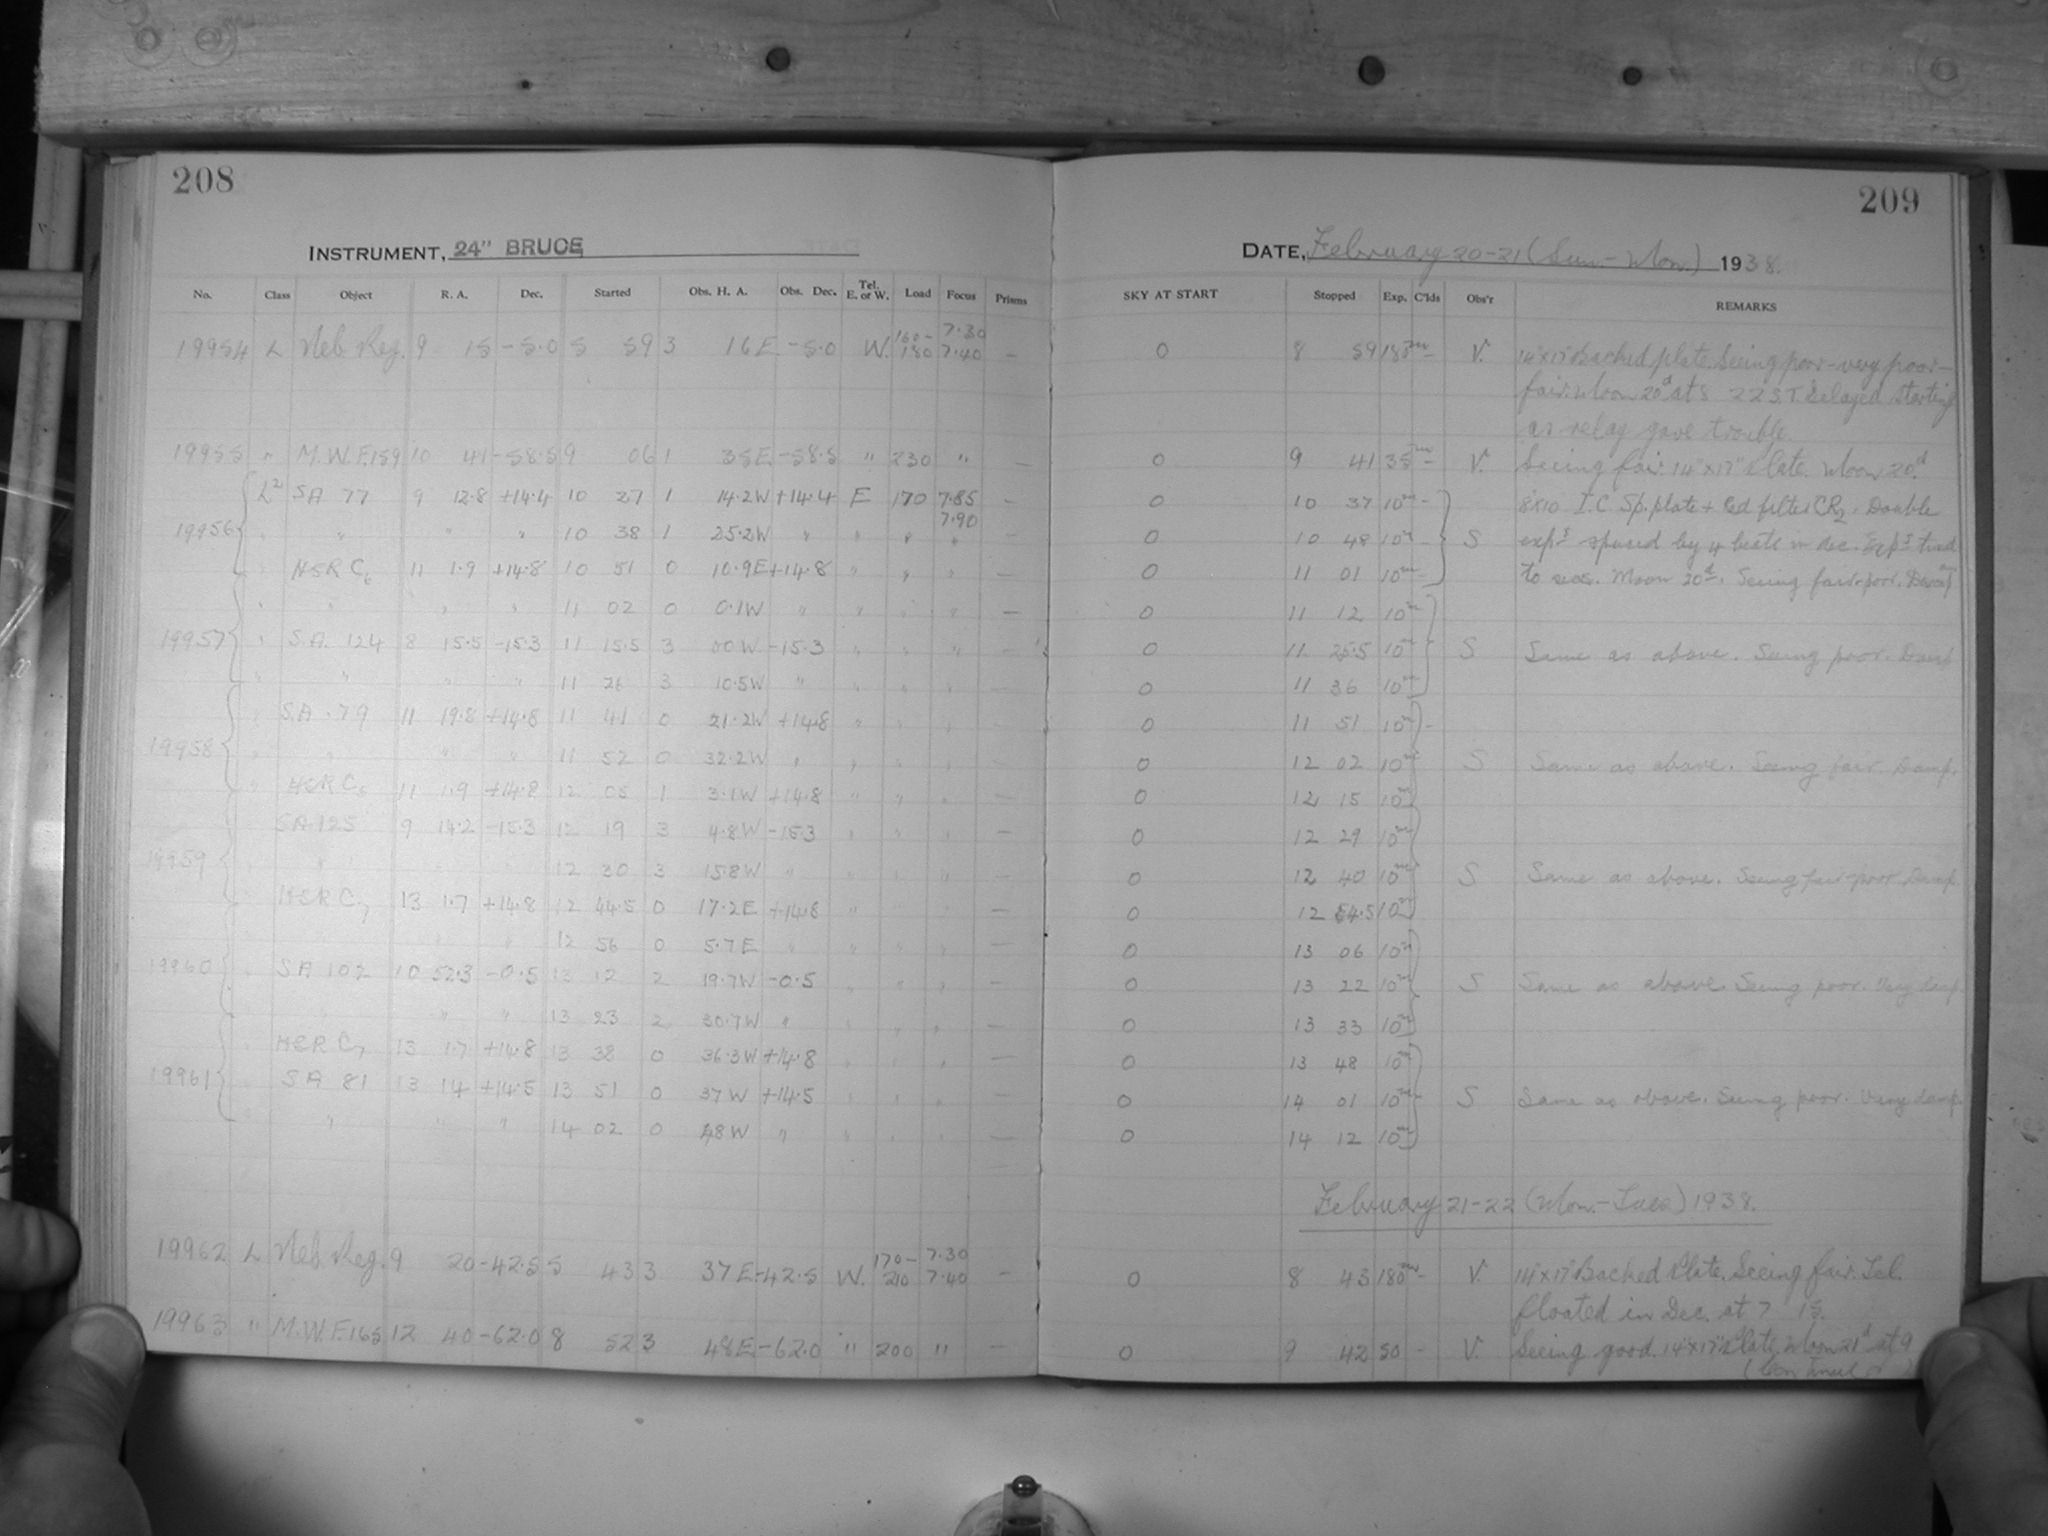 208
209
INSTRUMENT, 24" BRUCE
DATE, February 20-21 (Sun.-Mon.) 1938.
No. Class Object R. A. Dec. Started Obs. H. A. Obs. Dec. Tel. E. or W. Load Focus Prisms SKY AT START Stopped Exp. C'lds Obs'r REMARKS
19954 L Neb. Reg. 9 15 -5.0 5 59 3 16E -5.0 W. 160-180 7.30 7.40 — 0 8 59 180m — V. 14"x17" Backed plate. Seeing poor-very poor-
fair. Moon 20d at 5 22 S.T. Delayed starting
as relay gave trouble.
19955 " M.W.F.159 10 41 -58.5 9 06 1 35E -58.5 " 230 " — 0 9 41 35m — V. Seeing fair. 14"x17" Plate. Moon 20d
L2 SA 77 9 12.8 +14.4 10 27 1 14.2W +14.4 E 170 7.85 7.90 — 0 10 37 10m — 8x10 I.C. Sp. plate + Red filter CR2. Double
19956 " " " " 10 38 1 25.2W " " " " — 0 10 48 10m — S exps spaced by 4 beats in dec.
" HSR C6 11 1.9 +14.8 10 51 0 10.9E +14.8 " " " — 0 11 01 10m — Moon 20d. Seeing fair-poor.
" " " " 11 02 0 0.1W " " " " — 0 11 12 10m
19957 " S.A. 124 8 15.5 -15.3 11 15.5 3 00W -15.3 " " " — 0 11 25.5 10m S Same as above. Seeing poor. Damp
" " " " 11 26 3 10.5W " " " " — 0 11 36 10m
" SA 79 11 19.8 +14.8 11 41 0 21.2W +14.8 " " " — 0 11 51 10m —
19958 " " " " 11 52 0 32.2W " " " " — 0 12 02 10m S Same as above. Seeing fair. Damp.
" HSR C6 11 1.9 +14.8 12 05 1 3.1W +14.8 " " " — 0 12 15 10m
SA 125 9 14.2 -15.3 12 19 3 4.8W -15.3 " " " — 0 12 29 10m
19959 " " " " 12 30 3 15.8W " " " " — 0 12 40 10m S Same as above. Seeing fair-poor. Damp.
HSR C7 13 1.7 +14.8 12 44.5 0 17.2E +14.8 " " " — 0 12 54.5 10m
" " " 12 56 0 5.7E " " " " — 0 13 06 10m
19960 " SA 102 10 52.3 -0.5 13 12 2 19.7W -0.5 " " " — 0 13 22 10m S Same as above. Seeing poor. Very damp.
" " " 13 23 2 30.7W " " " " — 0 13 33 10m
" HSR C7 13 1.7 +14.8 13 38 0 36.3W +14.8 " " " — 0 13 48 10m
19961 " SA 81 13 14 +14.5 13 51 0 37W +14.5 " " " — 0 14 01 10m S Same as above. Seeing poor. Very damp.
" " " " 14 02 0 48W " " " " — 0 14 12 10m
February 21-22 (Mon.-Tues) 1938.
19962 L Neb. Reg. 9 20 -42.5 5 43 3 37E -42.5 W. 170-210 7.30 7.40 — 0 8 43 180m — V. 14"x17" Backed Plate. Seeing fair. Tel.
floated in Dec. at 7 15.
19963 " M.W.F.165 12 40 -62.0 8 52 3 48E -62.0 " 200 " — 0 9 42 50 — V. Seeing good. 14"x17" Plate. Moon 21d at 9